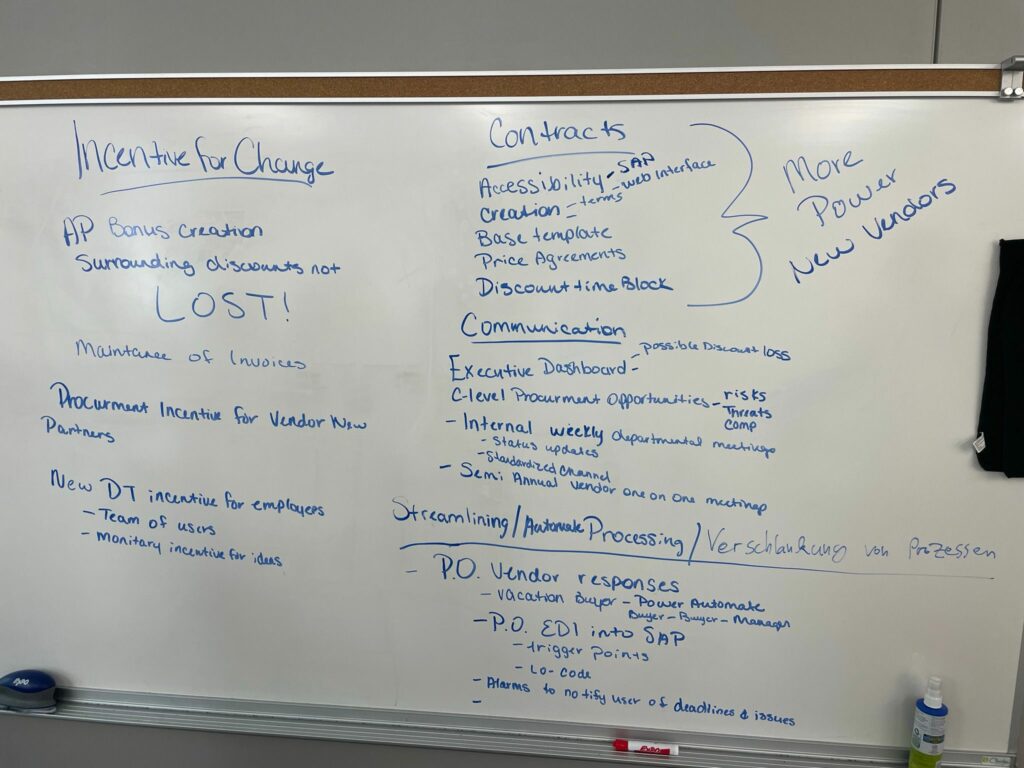 Incentive for Change
AP Bonus Creation
Surrounding discounts not
LOST!
Maintance of Invoices
Procurment Incentive for Vendor New
Partners
New DT incentive for employees
- Team of users
- Monitary incentive for ideas
Contracts
Accessibility - SAP
- web interface
Creation - terms
Base template
Price Agreements
Discount time Block
More
Power
New Vendors
Communication
Executive Dashboard - possible Discount loss
C-level Procurment Opportunities - risks
Threats
Comp
- Internal weekly departmental meetings
- Status updates
- Standardized Channel
- Semi Annual Vendor one on one meetings
Streamlining/Automate Processing/Verschlankung von Prozessen
- P.O. Vendor responses
- Vacation Buyer - Power Automate
Buyer - Buyer - Manager
- P.O. EDI into SAP
- trigger points
- Lo-Code
- Alarms to notify user of deadlines & issues
-
EXPO
EXPO